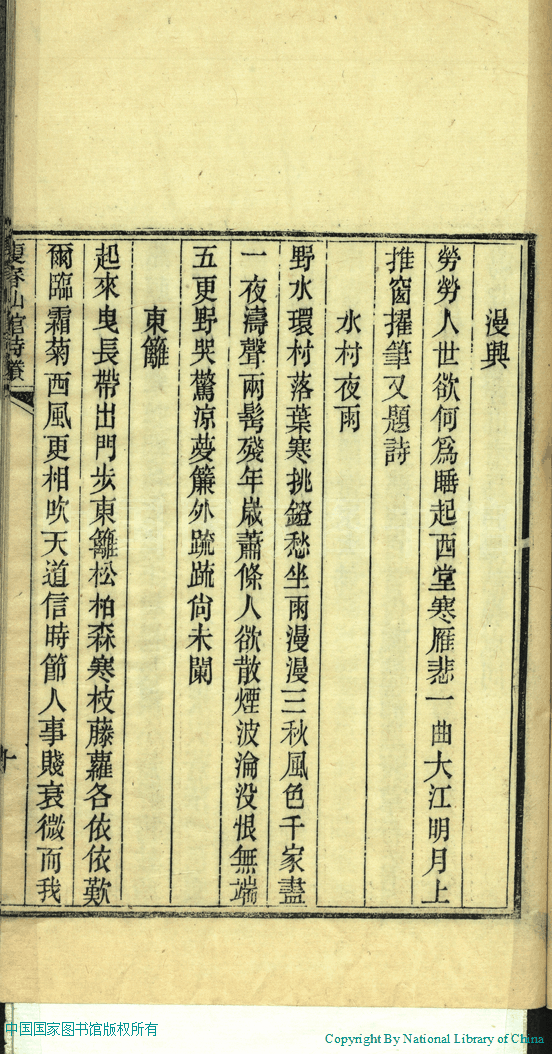 漫興
勞勞人世欲何爲睡起西堂寒雁悲一曲大江明月上
推窗擢筆又題詩
水村夜雨
野水環村落葉寒挑鐙愁坐雨漫漫三秋風色千家盡
一夜濤聲兩髩殘年歲蕭條人欲散煙波淪没恨無端
五更野哭驚涼夢簾外疏疏尙未闌
東籬
起來曳長帶出門步東籬松柏森寒枝藤蘿各依依歎
爾臨霜菊西風更相吹天道信時節人事賤衰微而我
春山館詩
十
中国国家图书馆版权所有
Copyright By National Library of China